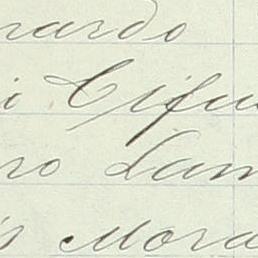 nardo
i Cifu
ro Lam
s Mora